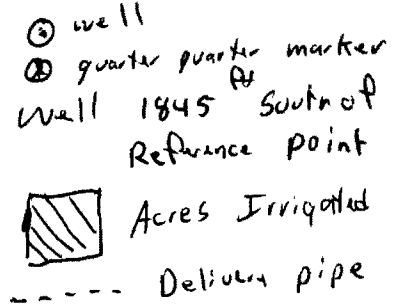 well
quarter quarter marker
Well 1845 ft South of
Reference Point
Acres Irrigated
Delivery pipe